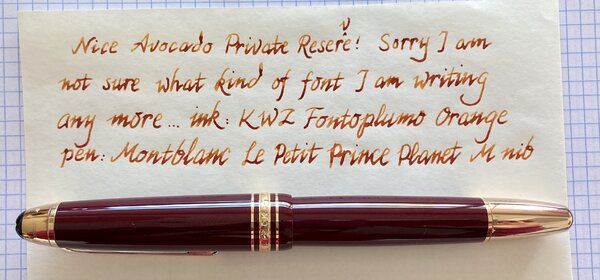 Nice Avocado Private Reserve! Sorry I am
not sure what kind of font I am writing
any more... ink: KWZ Fontoplumo Orange
pen: Montblanc Le Petit Prince Planet M nib